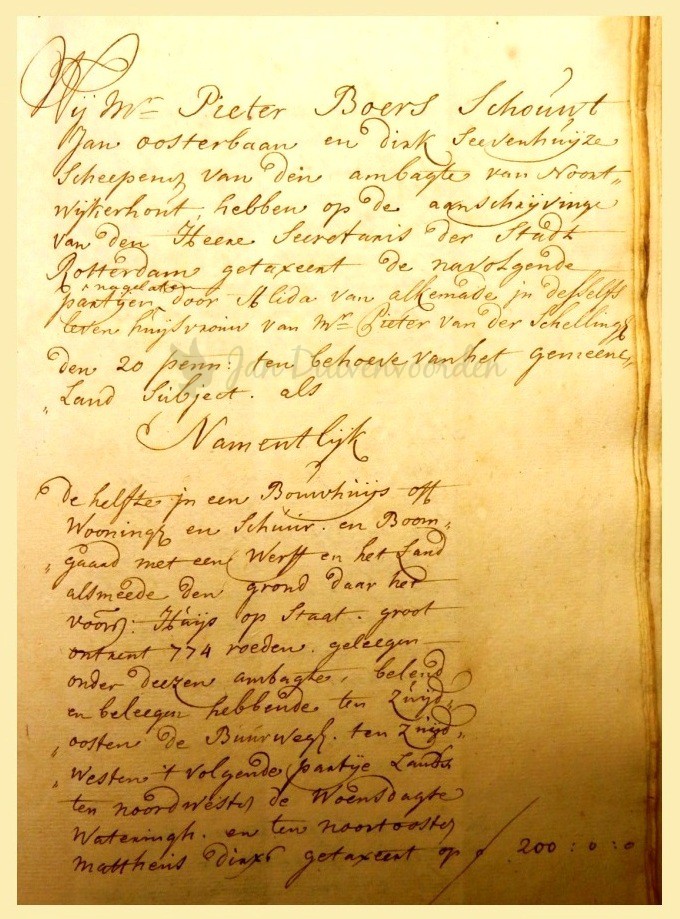 Wij Mr Pieter Boers Schouwt
Jan oosterbaan en dirk Seevenhuijze
Scheepens van den ambagte van Noort„
wijkerhout, hebben op de aanschrijvinge
van den Heere Secretaris der Stadt
Rotterdam getaxeert de navolgende
nagelaten
partyen, door Alida van alkemade in desselfs
leven huijsvrouw van Mr Pieter van der Schelling
den 20 penn: ten behoeve van het gemeene„
„Land Subject. als
Jan Duivenvoorden
Namentlijk
De helfte in een Bouwhuijs off
Wooningh en Schuur. en Boom„
„gaard met een Werff en het Land
alsmeede den grond daar het
voors: Huijs op Staat. groot
ontrent 774 roeden. geleegen
onder deezen ambagte, belend
en beleegen hebbende ten Zuijd„
„oosten de Buurwegh. ten Zuijd„
„westen 't volgende partije Lands
ten noordwesten de Woensdagte
Wateringh. en ten noortoosten
Mattheus dirxs getaxeert op ƒ 200:0:0